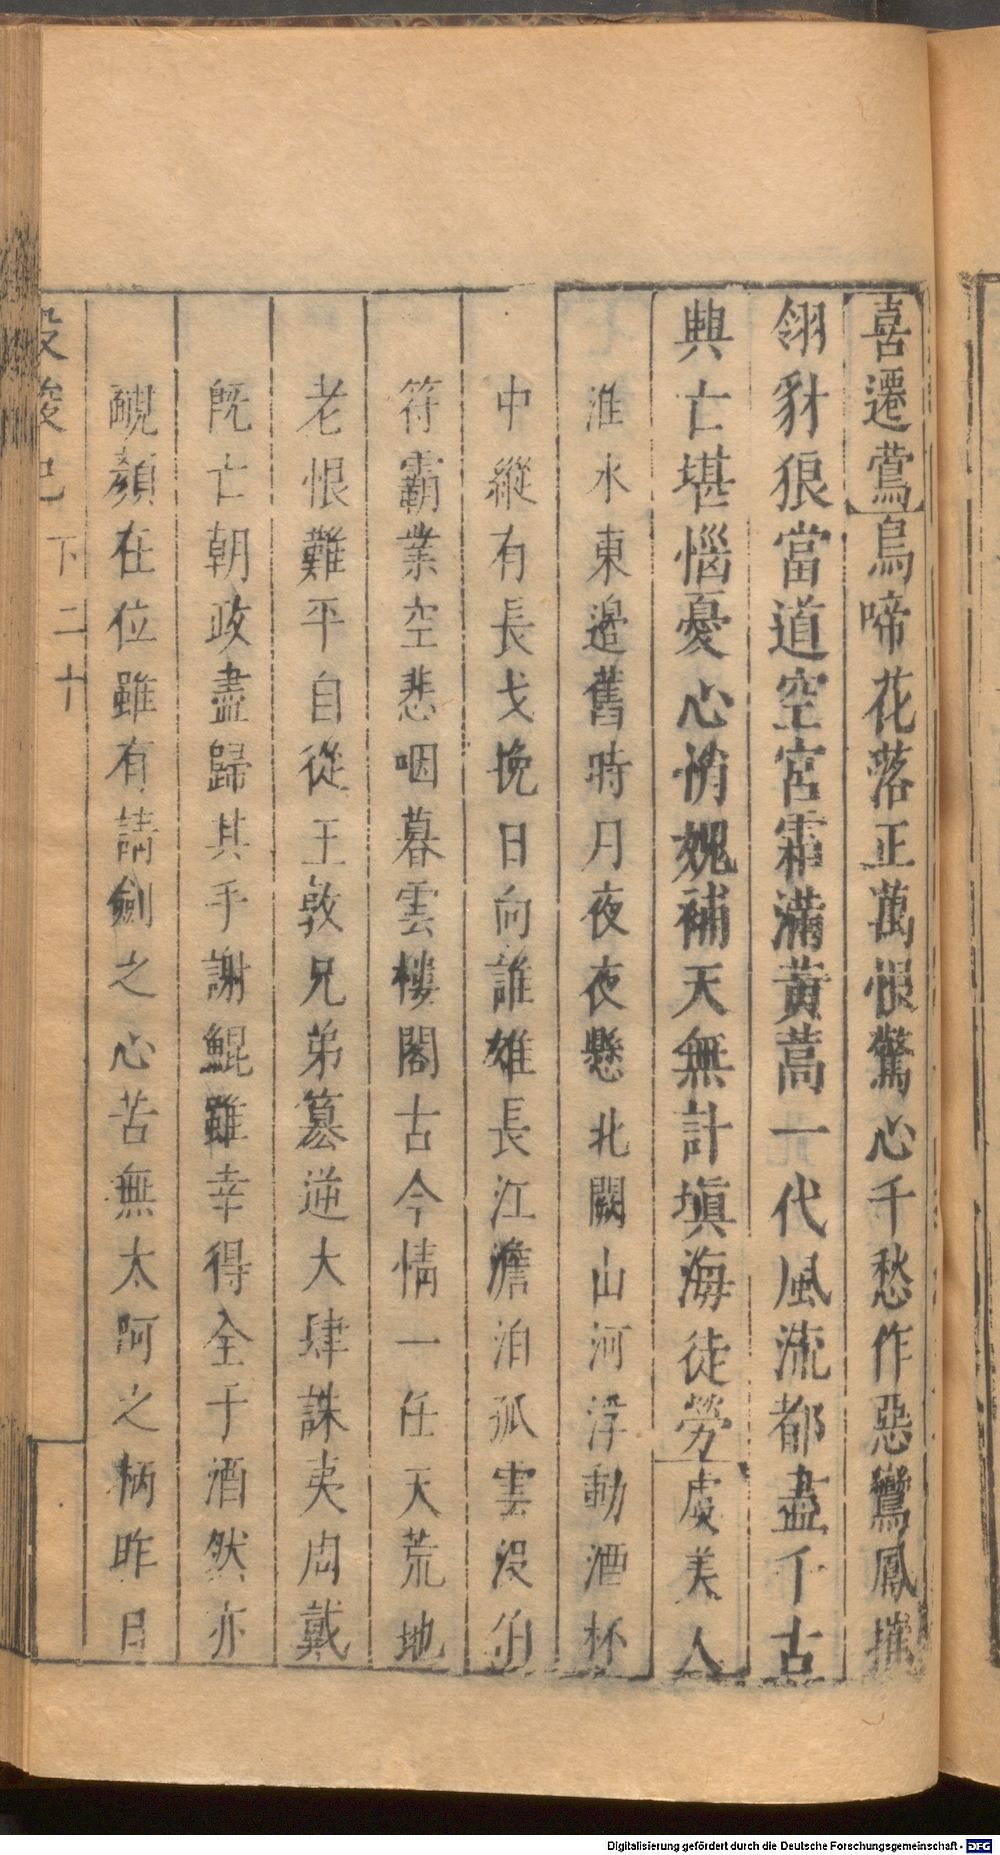 喜遷鶯鳥啼花落正萬恨驚心千愁作惡鸞鳳摧
翎豺狼當道空宮霜滿黃蒿一代風流都盡千古
興亡堪惱憂心悄媿補天無計塡海徒勞虞美人
淮水東邊舊時月夜夜懸北闕山河浮動酒杯
中縱有長戈挽日向誰雄長江澹泊孤雲沒伯
符霸業空悲咽暮雲樓閣古今情一任天荒地
老恨難平自從王敦兄弟篡逆大肆誅夷周戴
旣亡朝政盡歸其手謝鯤雖幸得全于酒然亦
靦顏在位雖有請劍之心苦無太阿之柄昨日
投梭記 下 二十
Digitalisierung gefördert durch die Deutsche Forschungsgemeinschaft - DFG